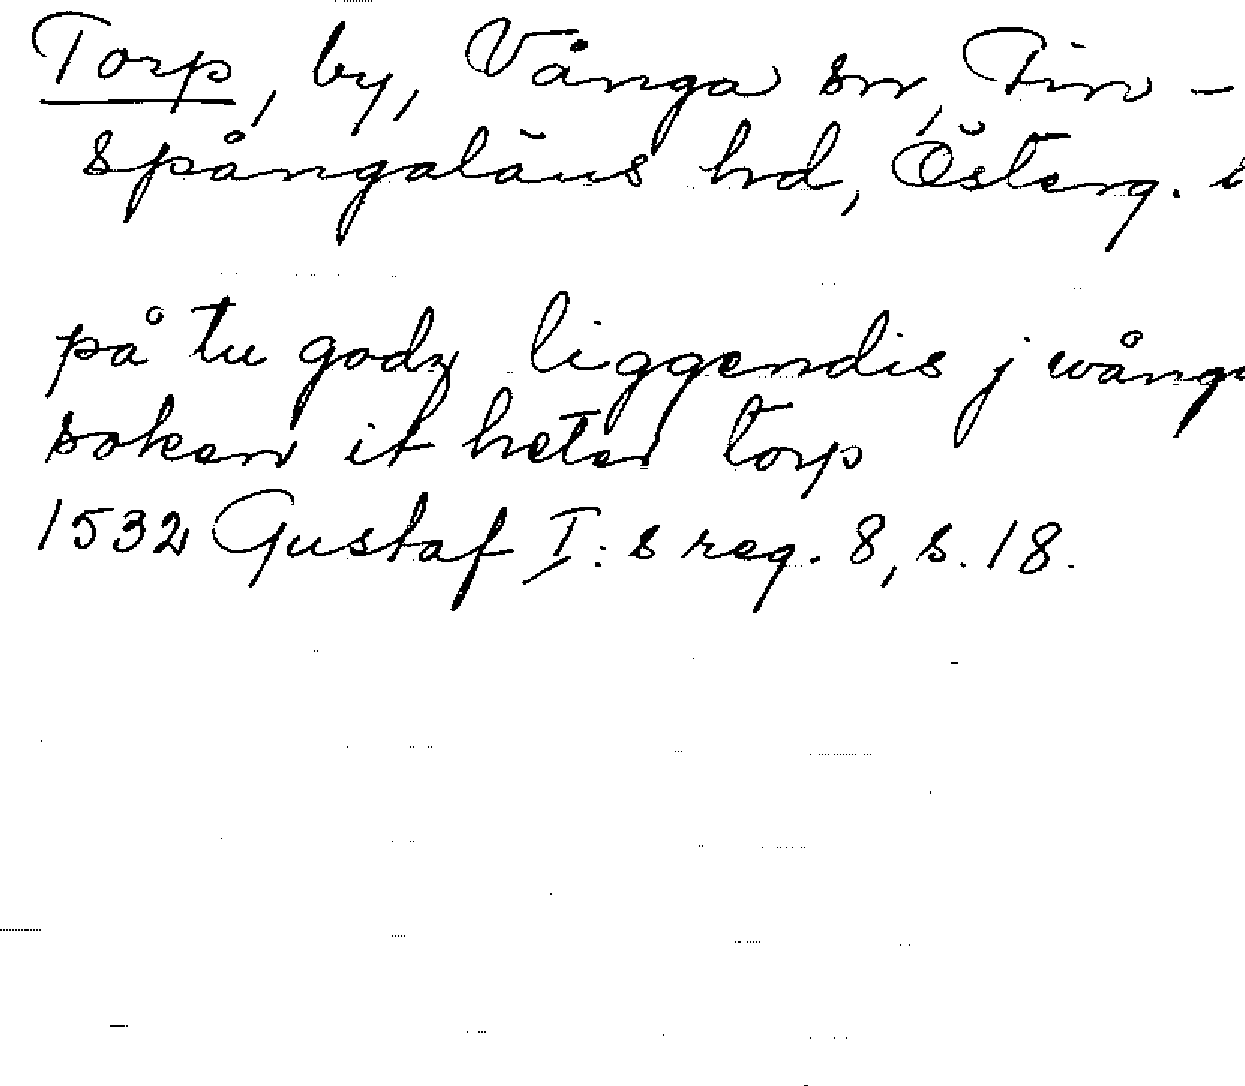 Torp, by, Vånga sn, Fin-
spångaläns hd, Österg.
på tu godz liggendis j wånga
soken it heter torp
1532 Gustaf I:s reg. 8, s. 18.